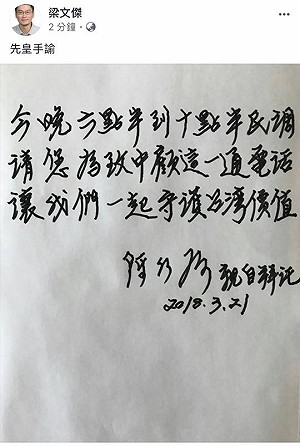 梁文傑
2 分鐘 ·
先皇手諭
今晚六點半到十點半民調
請您為致中顧這一通電話
讓我們一起守護台灣價值
陳水扁 親自拜託
2018.3.21